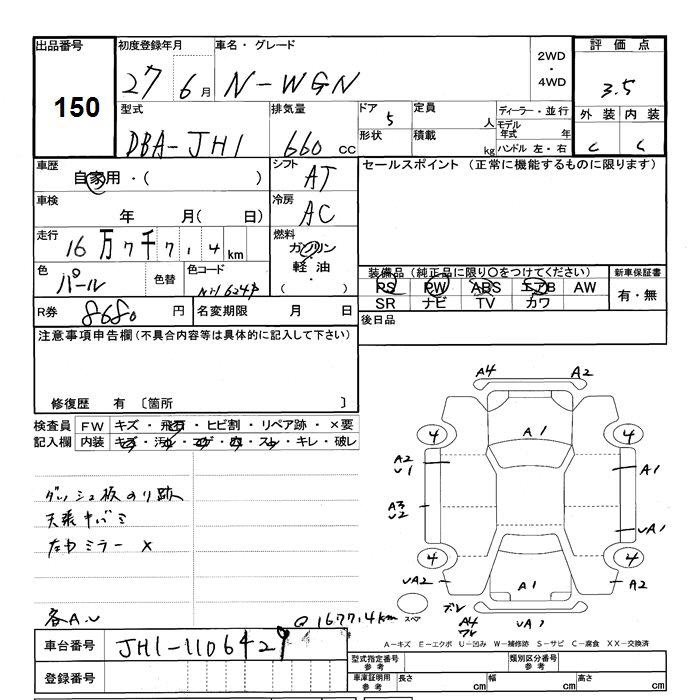 出品番号 初度登録年月 車名・グレード 2WD ・ 4WD 評価点
150 27 6月 N-WGN 3.5
型式 排気量 ドア 5 定員 人 ディーラー・並行 外装 内装
DBA-JH1 660 cc 形状 積載 kg モデル年式 年 ハンドル 左・右 C C
車歴 自家用・( ) シフト AT セールスポイント(正常に機能するものに限ります)
車検 年 月( 日) 冷房 AC
走行 16万7千7,4 km 燃料 ガソリン・軽油・( )
色 パール 色替 色コード 装備品(純正品に限り○をつけてください) 新車保証書
PS PW ABS エアB AW 有・無
SR ナビ TV カワ
R券 8680 円 名変期限 月 日 後日品
注意事項申告欄(不具合内容等は具体的に記入して下さい)
修復歴 有 〔箇所 〕
検査員 FW キズ・飛石・ヒビ割・リペア跡・×要
記入欄 内装 キズ・汚・コゲ・穴・スレ・キレ・破レ
ダッシュ板のり跡
天張キバミ
左ウミラー ×
各A.U
1677.4km
A4 A2
4 A1 4
A2 U1 A1
A3 U2 UA1
4 4
UA2 A1 A2
スペア A4 UA1
A-キズ E-エクボ U-凹み W-補修跡 S-サビ C-腐食 XX-交換済
車台番号 JH1-1106429
型式指定番号 参考 類別区分番号 参考
登録番号 車庫証明用 参考 長さ cm 幅 cm 高さ cm